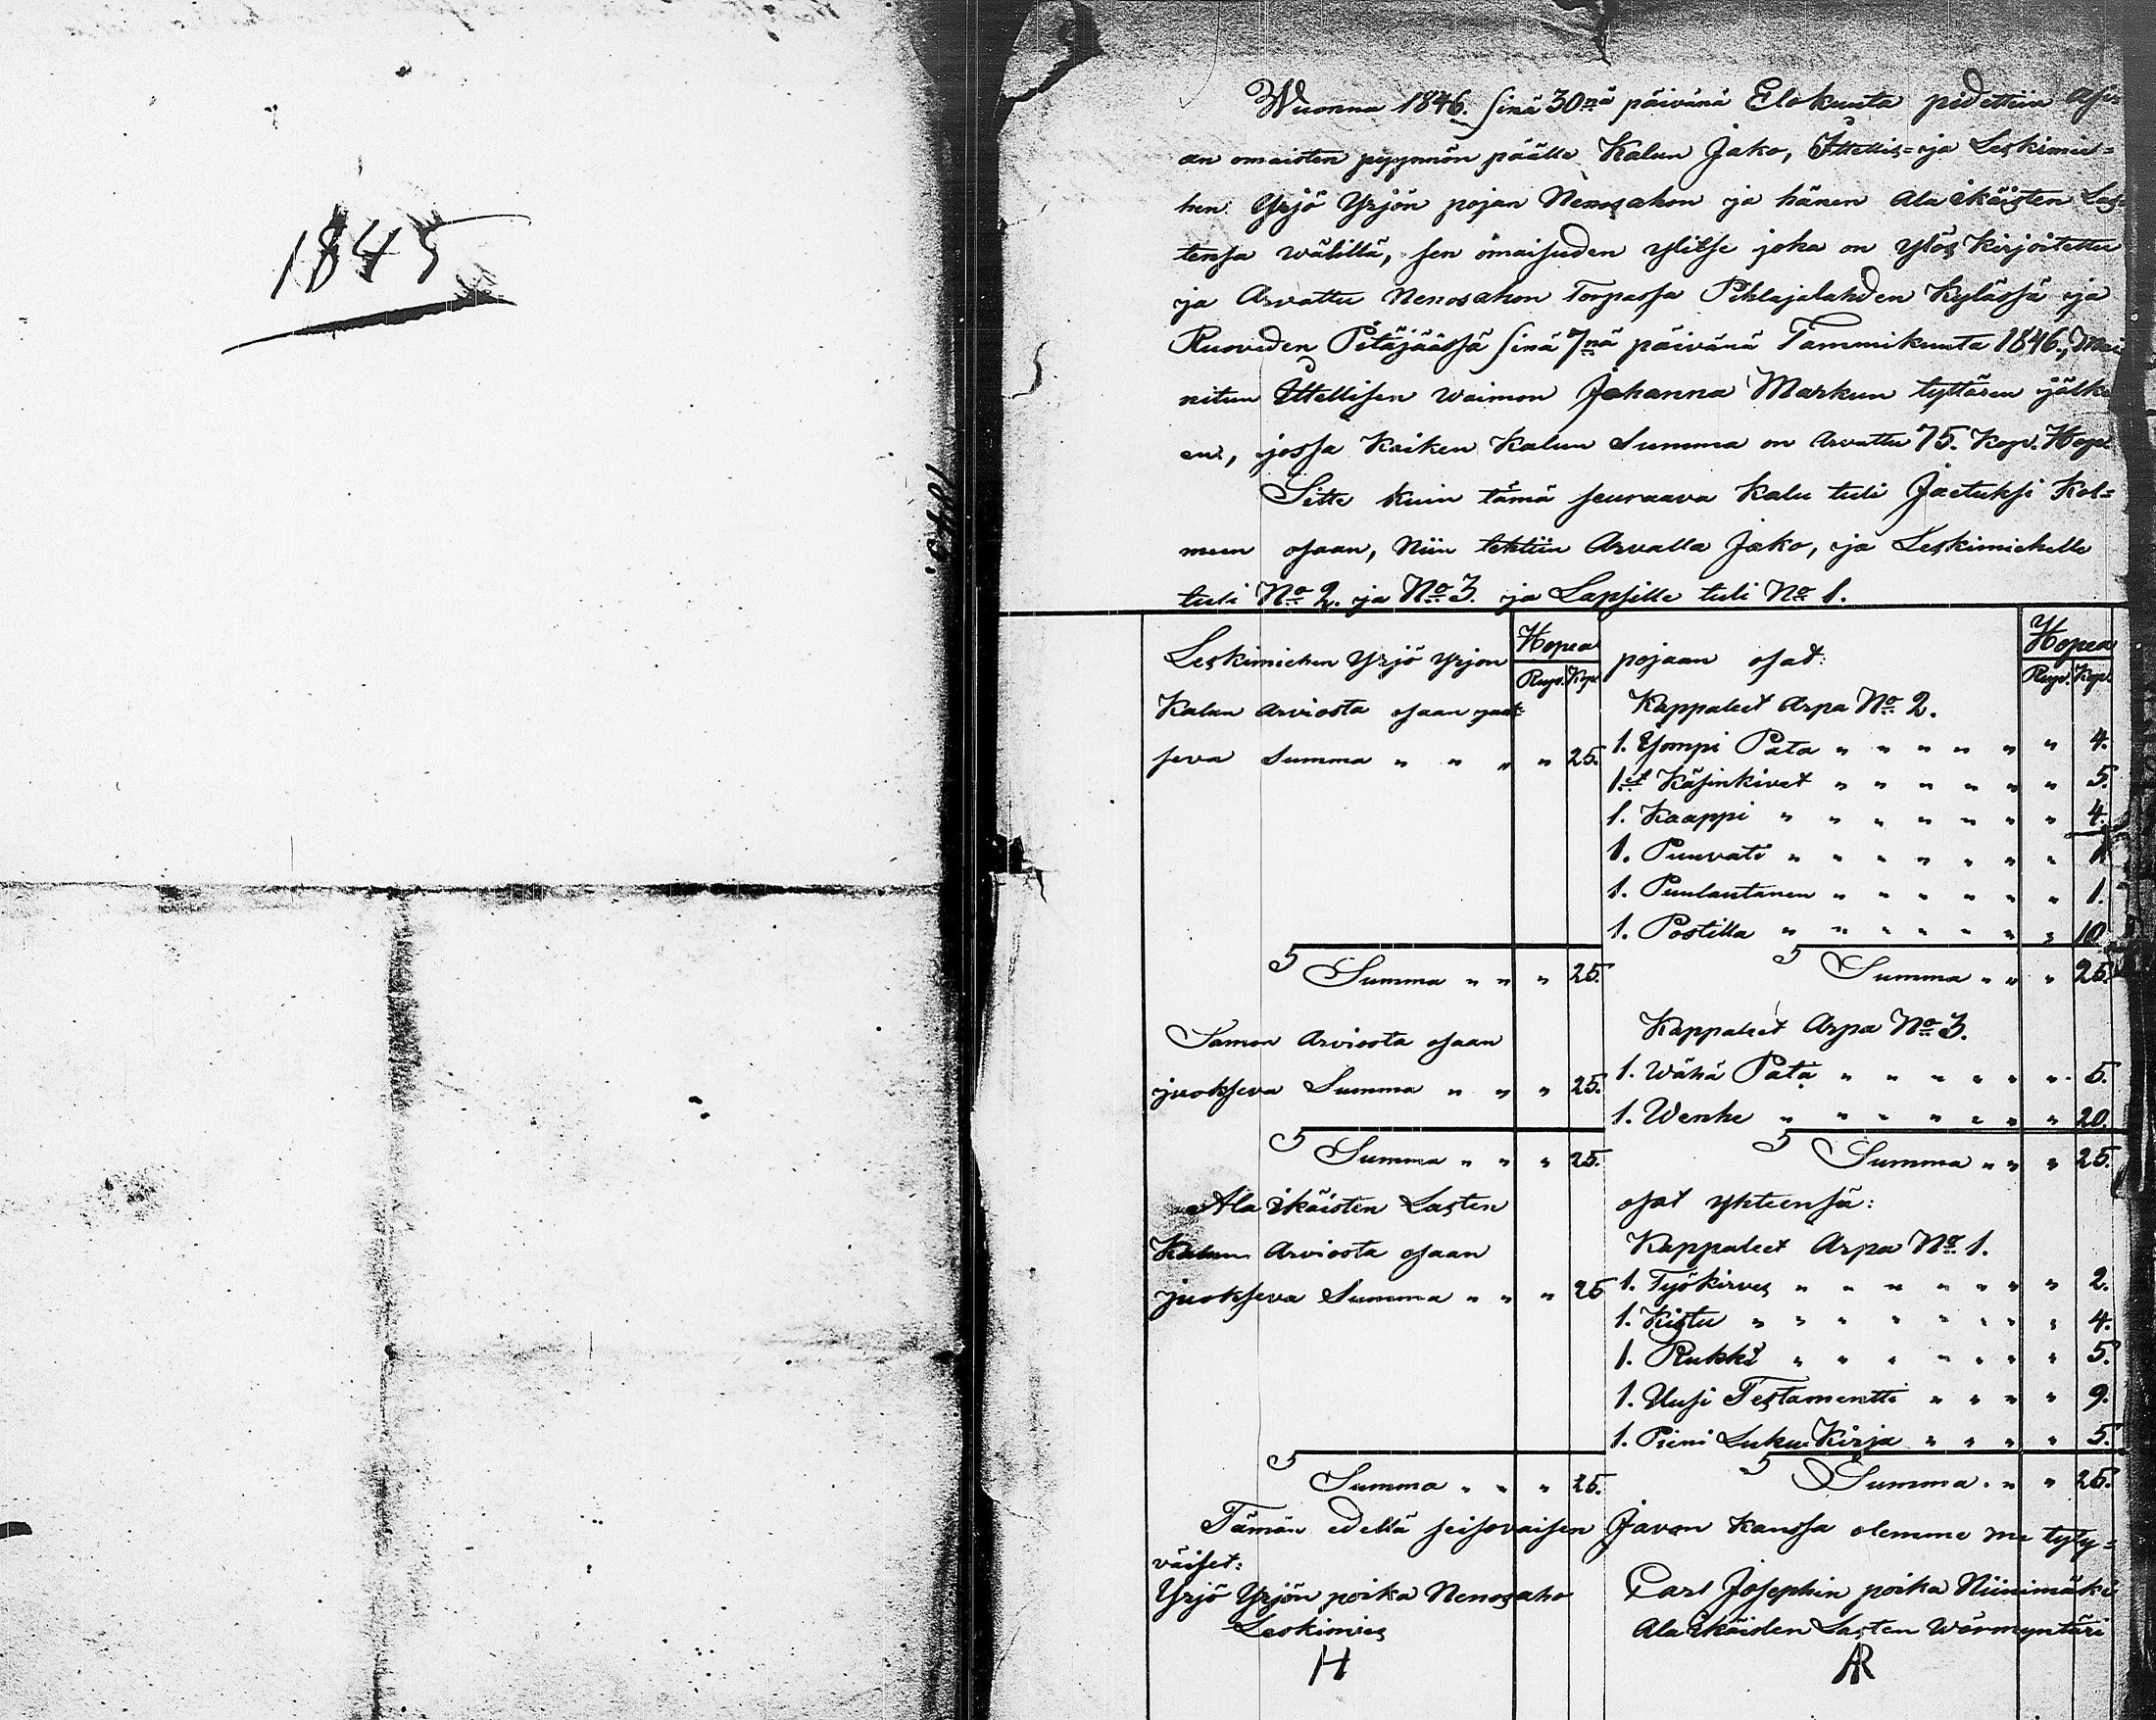 1845
1845.
Wuonna 1846. sinä 30nä päivänä Elokuuta pidettiin asi-
an omaisten pyynnön päälle Kalun Jako, Ittellis- ja Leskimie-
hen Yrjö Yrjön pojan Nenosahon ja hänen Ala ikäisten Las-
tensa wälillä, sen omaisuden ylitse joka on ylös Kirjoitettu
ja Arvattu Nenosahon Torpassa Pihlajalahden Kylässä ja
Ruoveden Pitäjäässä sinä 7nä päivänä Tammikuuta 1846., Mai
nitun Ittellisen Waimon Johanna Markun tyttären jälke
en, jossa Kaiken Kalun Summa on Arvattu 75. Kop. Hope
Sitte kuin tämä seuraava Kalu tuli Jaetuksi Kol-
meen osaan, Niin tehtiin Arvalla Jako, ja Leskimiehelle
tuli No 2. ja No 3. ja Lapsille tuli No 1.
Leskimiehen Yrjö Yrjon pojaan osat:
Hopea Rup. Kop. Hopea Rup. Kop.
Kalun Arviosta osaan juok-
seva Summa " " " " 25.
Kappaleet Arpa No 2.
1. Ympi Pata " " " " " " 4.
1.et Käsinkivet " " " " " " 5.
1. Kaappi " " " " " " " 4.
1. Puuvati " " " " " " " 1.
1. Puulautanen " " " " " " 1.
1. Postilla " " " " " " " 10.
Summa " " " 25. Summa " " " 25.
Samon Arviosta osaan
juokseva Summa " " " 25.
Kappaleet Arpa No 3.
1. Wähä Pata " " " " " " 5.
1. Wenhe " " " " " " " 20.
Summa " " " 25. Summa " " " 25.
Ala ikäisten Lasten osat yhteensä:
Kalun Arviosta osaan
juokseva Summa " " " 25
Kappaleet Arpa No 1.
1. Työkirves " " " " " " " 2.
1. Kistu " " " " " " " " 4.
1. Rukki " " " " " " " 5.
1. Uusi Testamentti " " " " 9.
1. Pieni Luku Kirja " " " " 5.
Summa " " " 25. Summa " " " 25.
Tämän edellä seisovaisen Javon kanssa olemme me tyty-
väiset:
Yrjö Yrjön poika Nenosaho
Leskimies
H
Carl Josephin poika Niinimäki
Ala ikäisten Lasten Wörmyntäri
AR